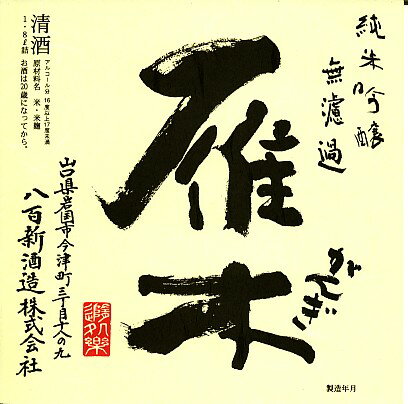 純米吟醸
無濾過
雁木
がんぎ
清酒
アルコール分 16度以上17度未満
原材料名 米・米麹
1.8ℓ詰 お酒は20歳になってから。
山口県岩国市今津町三丁目十八の九
八百新酒造株式会社
製造年月